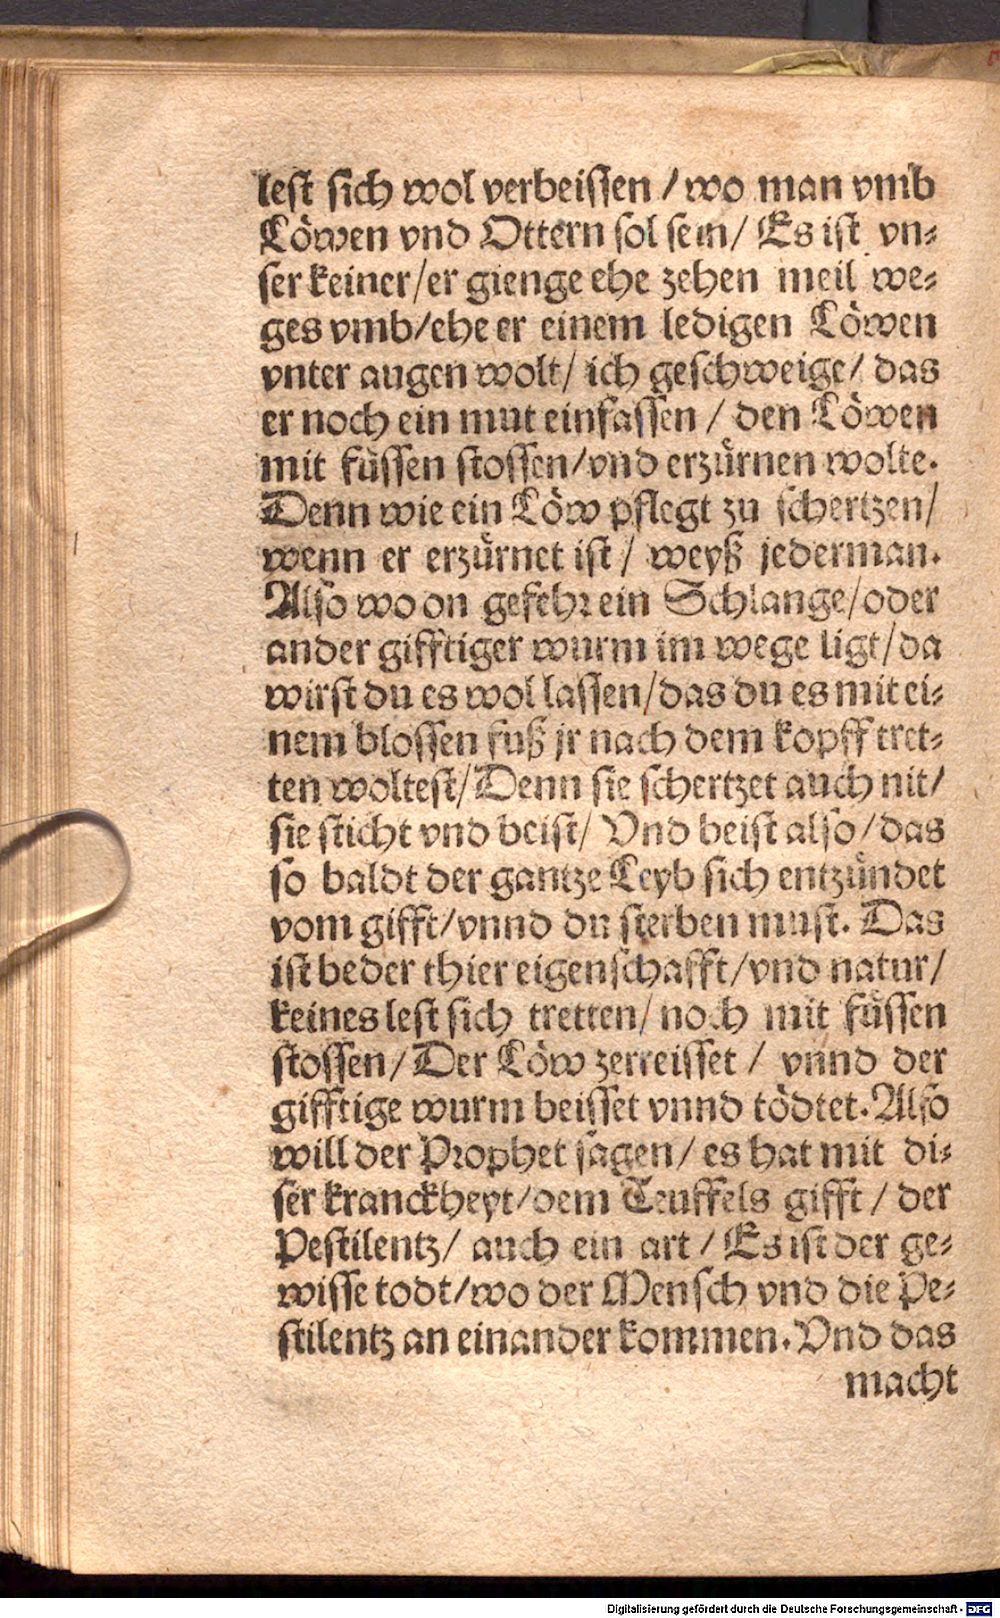 lest sich wol verbeissen / wo man vmb
Löwen vnd Ottern sol sein / Es ist vn⸗
ser keiner / er gienge ehe zehen meil we⸗
ges vmb / ehe er einem ledigen Löwen
vnter augen wolt / ich geschweige / das
er noch ein mut einfassen / den Löwen
mit füssen stossen / vnd erzürnen wolte.
Denn wie ein Löw pflegt zu schertzen /
wenn er erzürnet ist / weyß jederman.
Also wo on gefehr ein Schlange / oder
ander gifftiger wurm im wege ligt / da
wirst du es wol lassen / das du es mit ei⸗
nem blossen fuß jr nach dem kopff tret⸗
ten woltest / Denn sie schertzet auch nit /
sie sticht vnd beist / Vnd beist also / das
so baldt der gantze Leyb sich entzündet
vom gifft / vnnd du sterben must. Das
ist beder thier eigenschafft / vnd natur /
keines lest sich tretten / noch mit füssen
stossen / Der Löw zerreisset / vnnd der
gifftige wurm beisset vnnd tödtet. Also
will der Prophet sagen / es hat mit di⸗
ser kranckheyt / dem Teuffels gifft / der
Pestilentz / auch ein art / Es ist der ge⸗
wisse todt / wo der Mensch vnd die Pe⸗
stilentz an einander kommen. Vnd das
macht
Digitalisierung gefördert durch die Deutsche Forschungsgemeinschaft - DFG